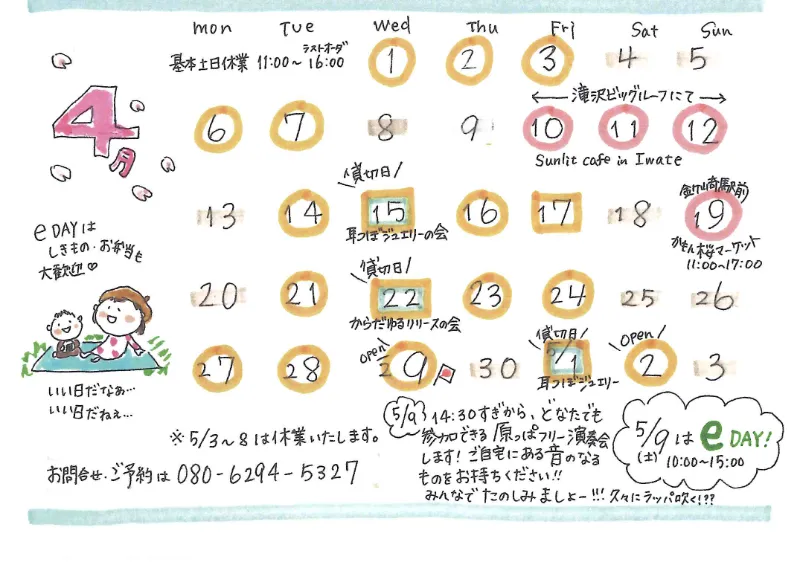 mon Tue Wed Thu Fri Sat Sun
4月
基本土日休業 11:00〜16:00
ラストオーダ
1 2 3 4 5
←滝沢ビッグルーフにて→
6 7 8 9 10 11 12
Sunlit cafe in Iwate
貸切日
13 14 15 16 17 18 19
耳つぼジュエリーの会
桜マーケット
11:00〜17:00
e DAYは
しきもの・お弁当も
大歓迎♡
貸切日!
20 21 22 23 24 25 26
からだゆるリリースの会
open
貸切日!
open!
27 28 29 30 5/1 2 3
耳つぼジュエリー
いい日だなぁ…
いい日だねぇ…
※5/3〜8は休業いたします。
お問合せ・ご予約は 080-6294-5327
5/9 14:30すぎから、どなたでも
参加できる原っぱフリー演奏会
します!ご自宅にある音のなる
ものをお持ちください!!
みんなでたのしみましょー!!! 久々にラッパ吹く!??
5/9は e DAY!
(土) 10:00〜15:00